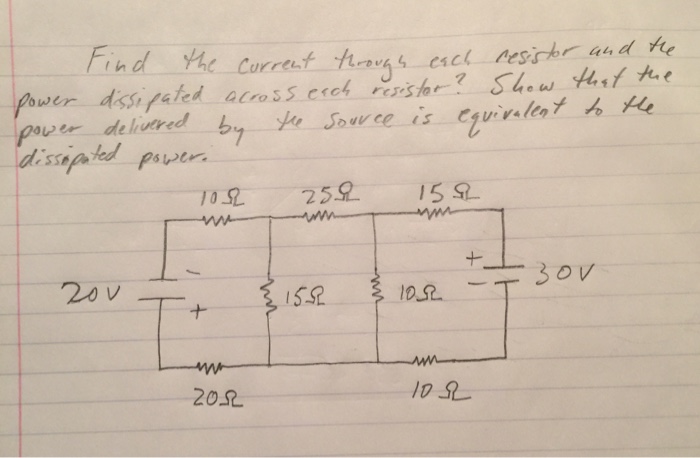 Find the current through each resistor and the
power dissipated across each resistor? Show that the
power delivered by the source is equivalent to the
dissipated power.
10Ω 25Ω 15Ω
-
+
20V 15Ω 10Ω - 30V
+
20Ω 10Ω